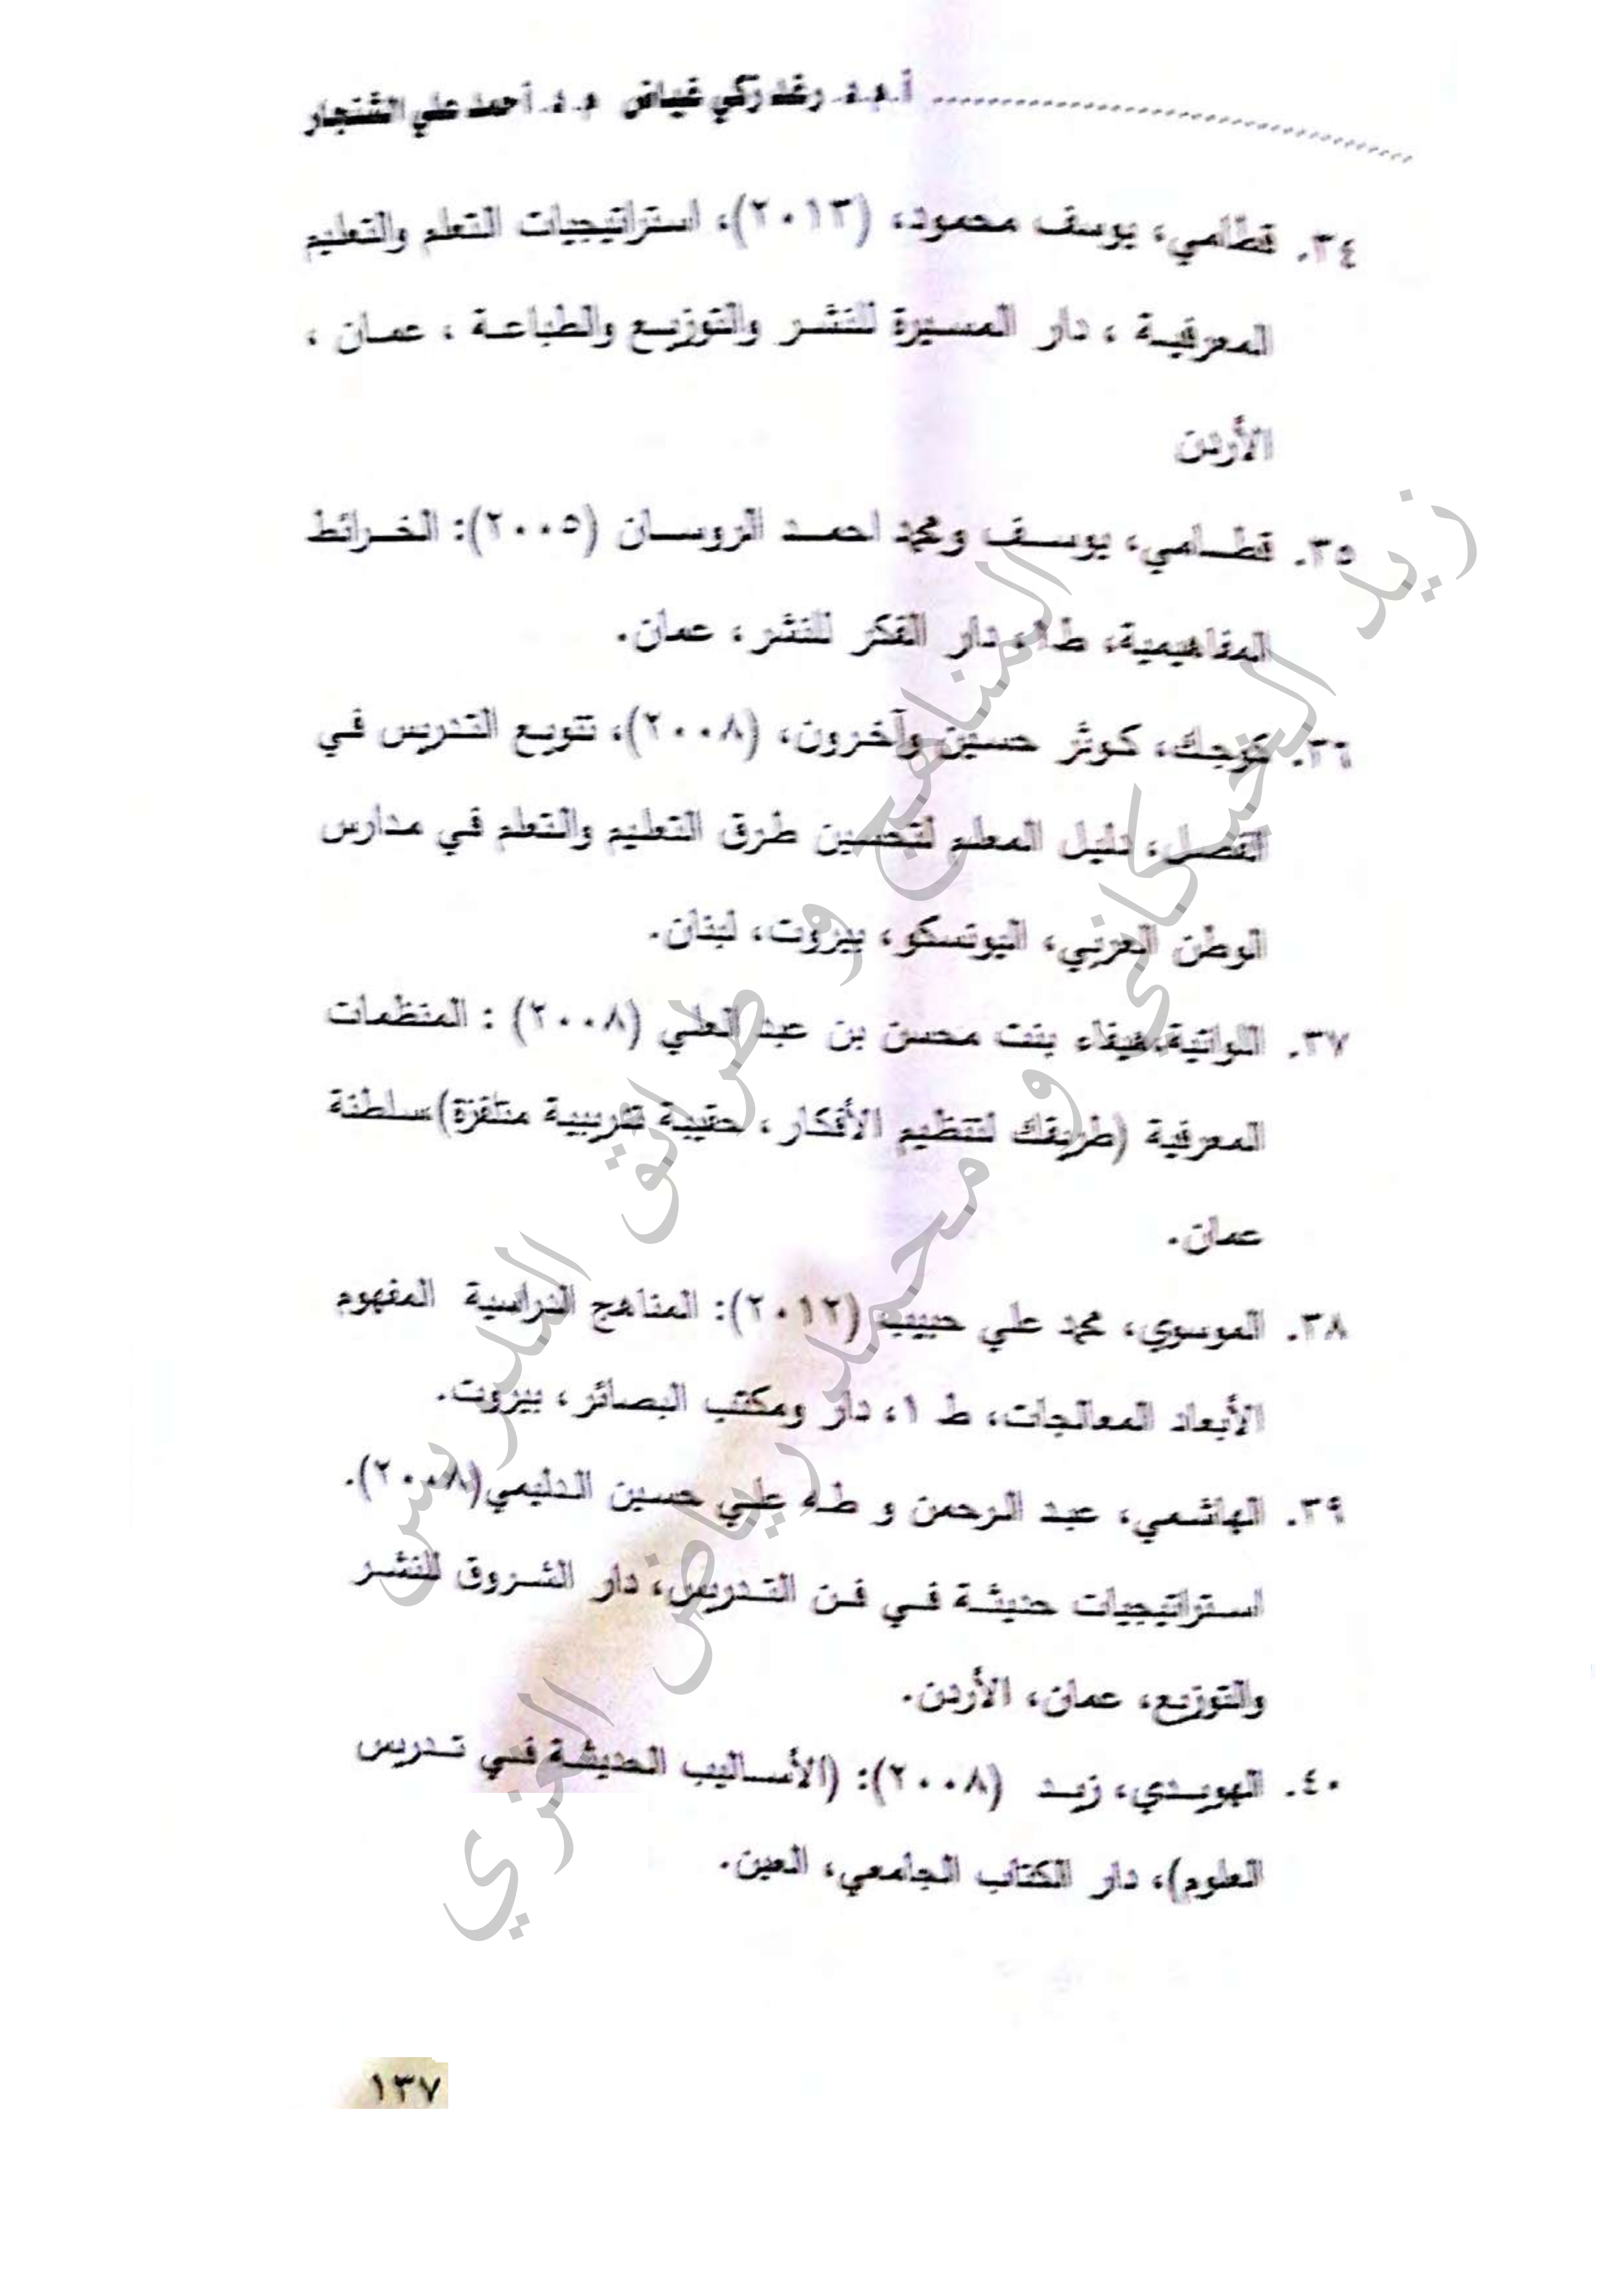 أ.م.د. رغد زكي غياض م.د. أحمد علي الشنجار
٣٤. قطامي، يوسف محمود، (٢٠١٣)، استراتيجيات التعلم والتعليم
المعرفية ، دار المسيرة للنشر والتوزيع والطباعة ، عمان ،
الأردن
٣٥. قطامي، يوسف ومحمد احمد الروسان (٢٠٠٥): الخرائط
المفاهيمية، ط١، دار الفكر للنشر، عمان.
٣٦. كوجك، كوثر حسين وآخرون، (٢٠٠٨)، تنويع التدريس في
الفصل، دليل المعلم لتحسين طرق التعليم والتعلم في مدارس
الوطن العربي، اليونسكو، بيروت، لبنان.
٣٧. اللواتية، هيفاء بنت محسن بن عبد العلي (٢٠٠٨) : المنظمات
المعرفية (طريقك لتنظيم الأفكار، حقيبة تدريبية متلفزة) سلطنة
عمان.
٣٨. الموسوي، محمد علي حبيب (٢٠١٢): المناهج الدراسية المفهوم
الأبعاد المعالجات، ط ١، دار ومكتب البصائر، بيروت.
٣٩. الهاشمي، عبد الرحمن و طه علي حسين الدليمي(٢٠٠٨).
استراتيجيات حديثة في فن التدريس، دار الشروق للنشر
والتوزيع، عمان، الأردن.
٤٠. الهويدي، زيد (٢٠٠٨): (الأساليب الحديثة في تدريس
العلوم)، دار الكتاب الجامعي، العين.
المناهج و طرائق التدريس
زيد الخيكاني و محمد رياض الغزي
١٣٧